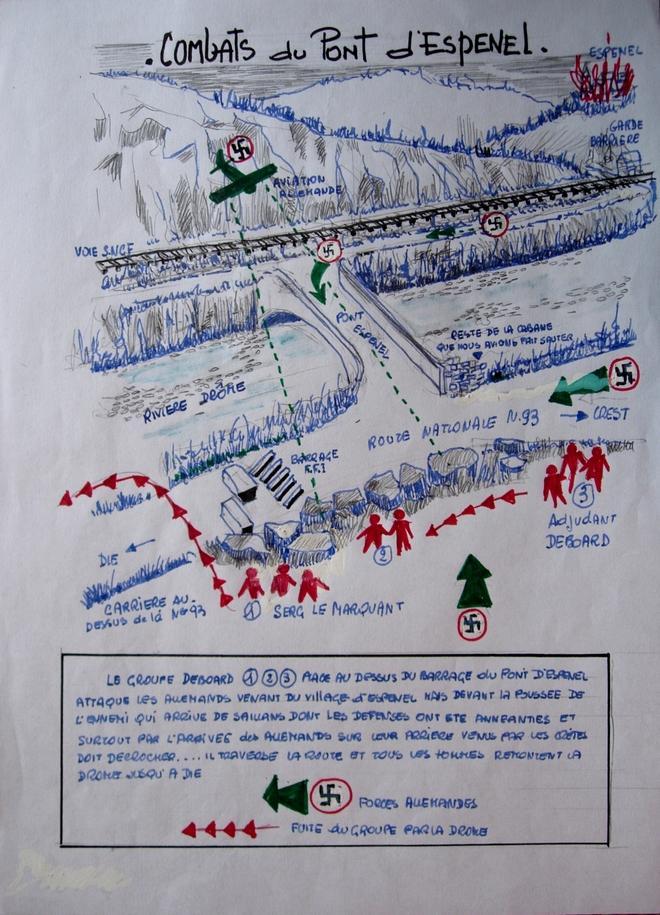 .COMBATS du PONT d'ESPENEL.
ESPENEL
GARDE
BARRIERE
AVIATION
ALLEMANDE
VOIE S.NCF
PONT
ESPENEL
RESTE DE LA CABANE
QUE NOUS AVIONS FAIT SAUTER
RIVIERE DRÔME
ROUTE NATIONALE N.93 → CREST
BARRAGE
F.F.I
3
ADJUDANT
DEBOARD
2
DIE
CARRIERE AU-
DESSUS de la NG 93
1 SERG LE MARQUANT
LE GROUPE DEBOARD 1 2 3 PLACE AU DESSUS DU BARRAGE du PONT D'ESPENEL
ATTAQUE LES ALLEMANDS VENANT DU VILLAGE d'ESPENEL MAIS DEVANT LA POUSSEE DE
L'ENNEMI QUI ARRIVE DE SAILLANS DONT LES DEFENSES ONT ETE ANNEANTIES ET
SURTOUT PAR L'ARRIVEE des ALLEMANDS SUR LEUR ARRIERE VENUS PAR LES CRÊTES
DOIT DECROCHER.... IL TRAVERSE LA ROUTE ET TOUS LES HOMMES REMONTENT LA
DROME JUSQU'A DIE
FORCES ALLEMANDES
FUITE du GROUPE PAR LA DROME